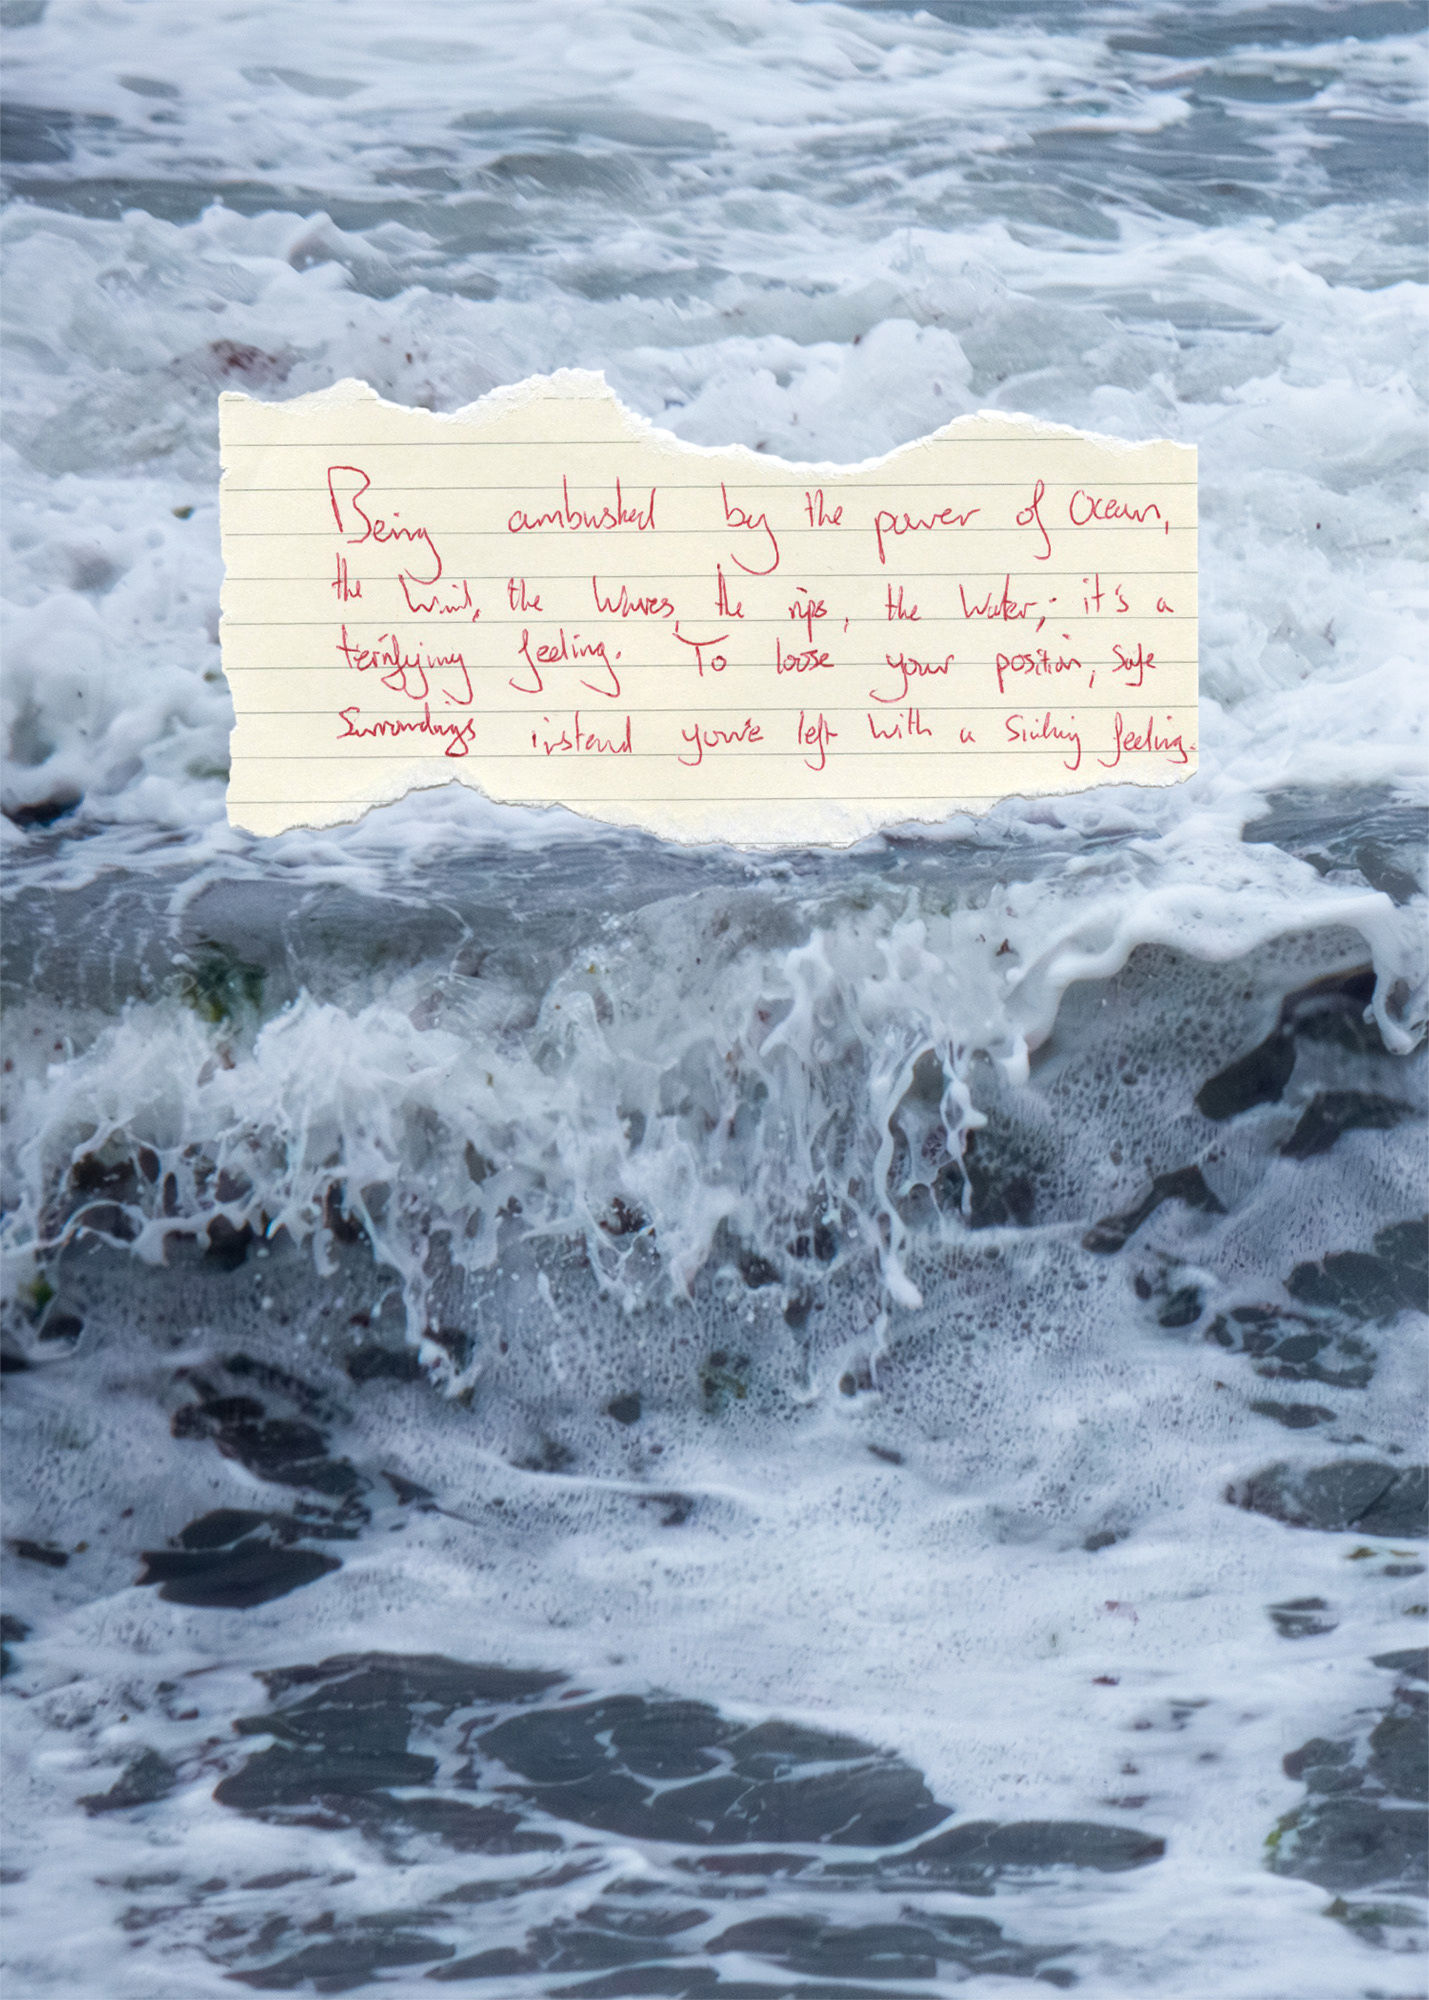 Being ambushed by the power of Ocean,
the Wind, the Waves, the rips, the Water; it's a
terrifying feeling. To loose your position, safe
Surroundings instead you're left with a sinking feeling.